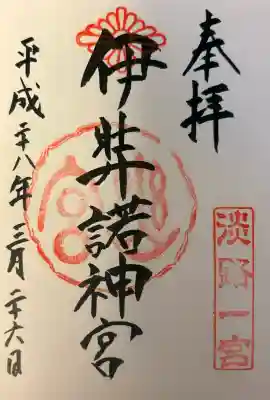 奉拝
淡路一宮
伊弉諾神宮
平成二十八年三月二十六日